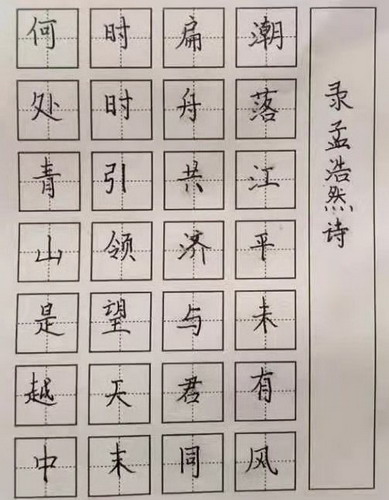 录孟浩然诗
潮落江平未有风
扁舟共济与君同
时时引领望天末
何处青山是越中